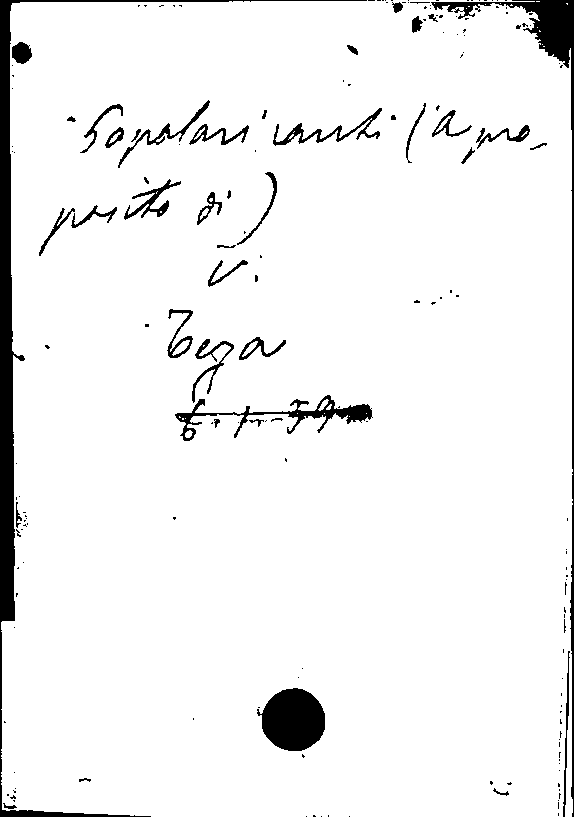 Popolari canti (a pro-
posito di)
V.
Teza
6.1.59